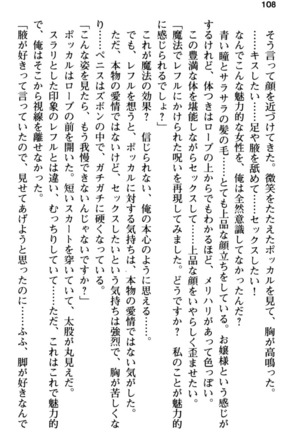 108
そう言って顔を近づけてきた。微笑をたたえたポッカルを見て、胸が高鳴った。
……キスしたい……足や腋を舐めて……セックスしたい！
なんでこんな魅力的な女性を、俺は全然意識してなかったんだ？
青い瞳とサラサラの髪の毛……とても上品な顔立ちをしている。お嬢様という感じが
するけれど、体つきはローブの上からでもわかるほど、メリハリがあって色っぽい。
この豊満な体を堪能しながらセックスして……上品な顔をいやらしく歪ませたい！
「魔法でレフルにかけられた呪いを再現してみました。どうですか？　私のことが魅力的
に感じられるでしょ？」
これが魔法の効果？　信じられない、俺の本心のように思える……。
だが、レフルを想うと、ポッカルに対する気持ちは、本物の愛情ではない気がした。
ただ、本物の愛情ではないけど、セックスしたいという気持ちは強烈で、胸が苦しくな
る……ペニスはズボンの中で、ガチガチに硬くなっている。
「こんな姿を見たら、もう我慢できないんじゃないですか？」
ポッカルはローブの前を開いた。短いスカートを穿いていて、太股が丸見えだ。
スラリとした印象のレフルとは違い、むっちりしていて……ただ、これはこれで魅力的
で、俺はそこから視線を離せなかった。
「腋が好きって言っていたので、見せてあげようと思ったのに……ふふ、脚が好きなんで